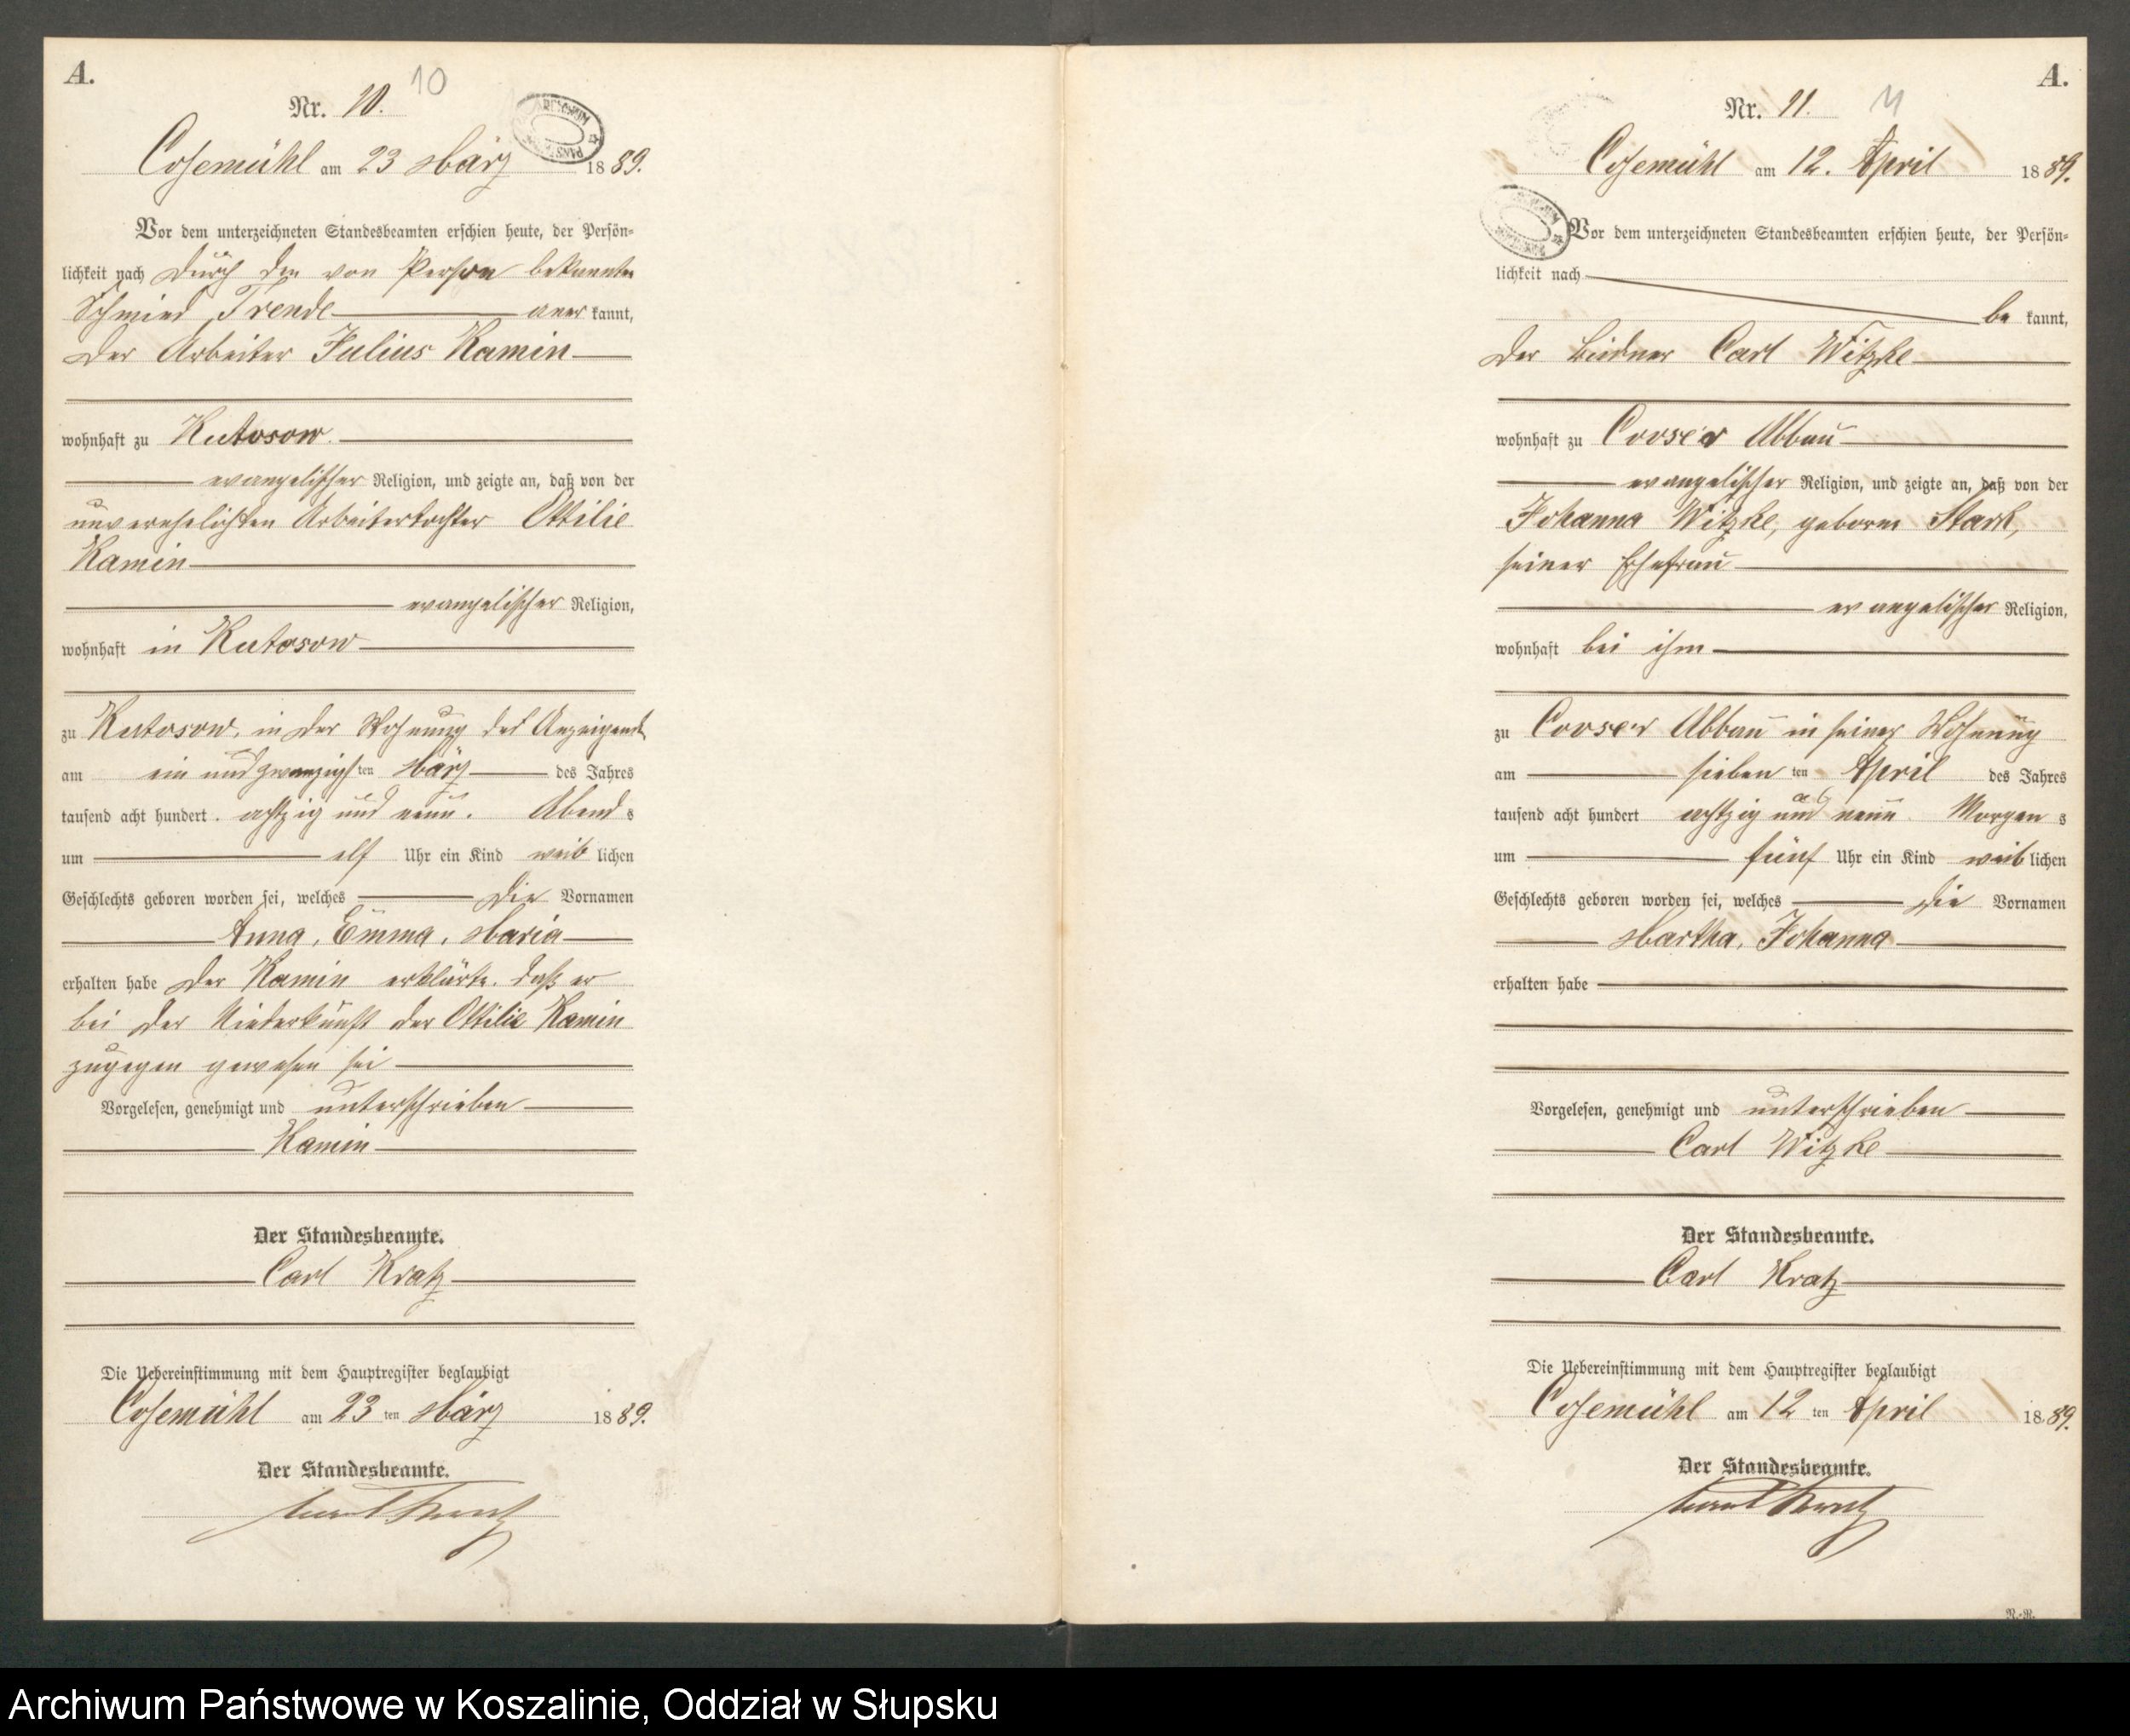 A.
Nr. 10. 10
Cosemühl am 23 März 1889.
Vor dem unterzeichneten Standesbeamten erschien heute, der Persön-
lichkeit nach durch den von Person bekannten
Schmied Trende anerkannt,
der Arbeiter Julius Kamin
wohnhaft zu Kutosow.
evangelischer Religion, und zeigte an, daß von der
unverehelichten Arbeitertochter Ottilie
Kamin
evangelischer Religion,
wohnhaft in Kutosow
zu Kutosow, in der Wohnung des Anzeigende
am ein und zwanzigsten März des Jahres
tausend acht hundert achtzig und neun. Abends
um elf Uhr ein Kind weiblichen
Geschlechts geboren worden sei, welches die Vornamen
Anna, Emma, Maria
erhalten habe der Kamin erklärte, daß er
bei der Niederkunft der Ottilie Kamin
zugegen gewesen sei
Vorgelesen, genehmigt und unterschrieben
Kamin
Der Standesbeamte.
Carl Kratz
Die Uebereinstimmung mit dem Hauptregister beglaubigt
Cosemühl am 23 ten März 1889.
Der Standesbeamte.
Carl Kratz
A.
Nr. 11. 11
Cosemühl am 12. April 1889.
Vor dem unterzeichneten Standesbeamten erschien heute, der Persön-
lichkeit nach
bekannt,
der Büdner Carl Witzke
wohnhaft zu Cooser Abbau
evangelischer Religion, und zeigte an, daß von der
Johanna Witzke, geboren Stark,
seiner Ehefrau
evangelischer Religion,
wohnhaft bei ihm
zu Cooser Abbau in seiner Wohnung
am sieben ten April des Jahres
tausend acht hundert achtzig und neun Morgens
um fünf Uhr ein Kind weiblichen
Geschlechts geboren worden sei, welches die Vornamen
Martha, Johanna
erhalten habe
Vorgelesen, genehmigt und unterschrieben
Carl Witzke
Der Standesbeamte.
Carl Kratz
Die Uebereinstimmung mit dem Hauptregister beglaubigt
Cosemühl am 12 ten April 1889.
Der Standesbeamte.
Carl Kratz
N.-R.
Archiwum Państwowe w Koszalinie, Oddział w Słupsku